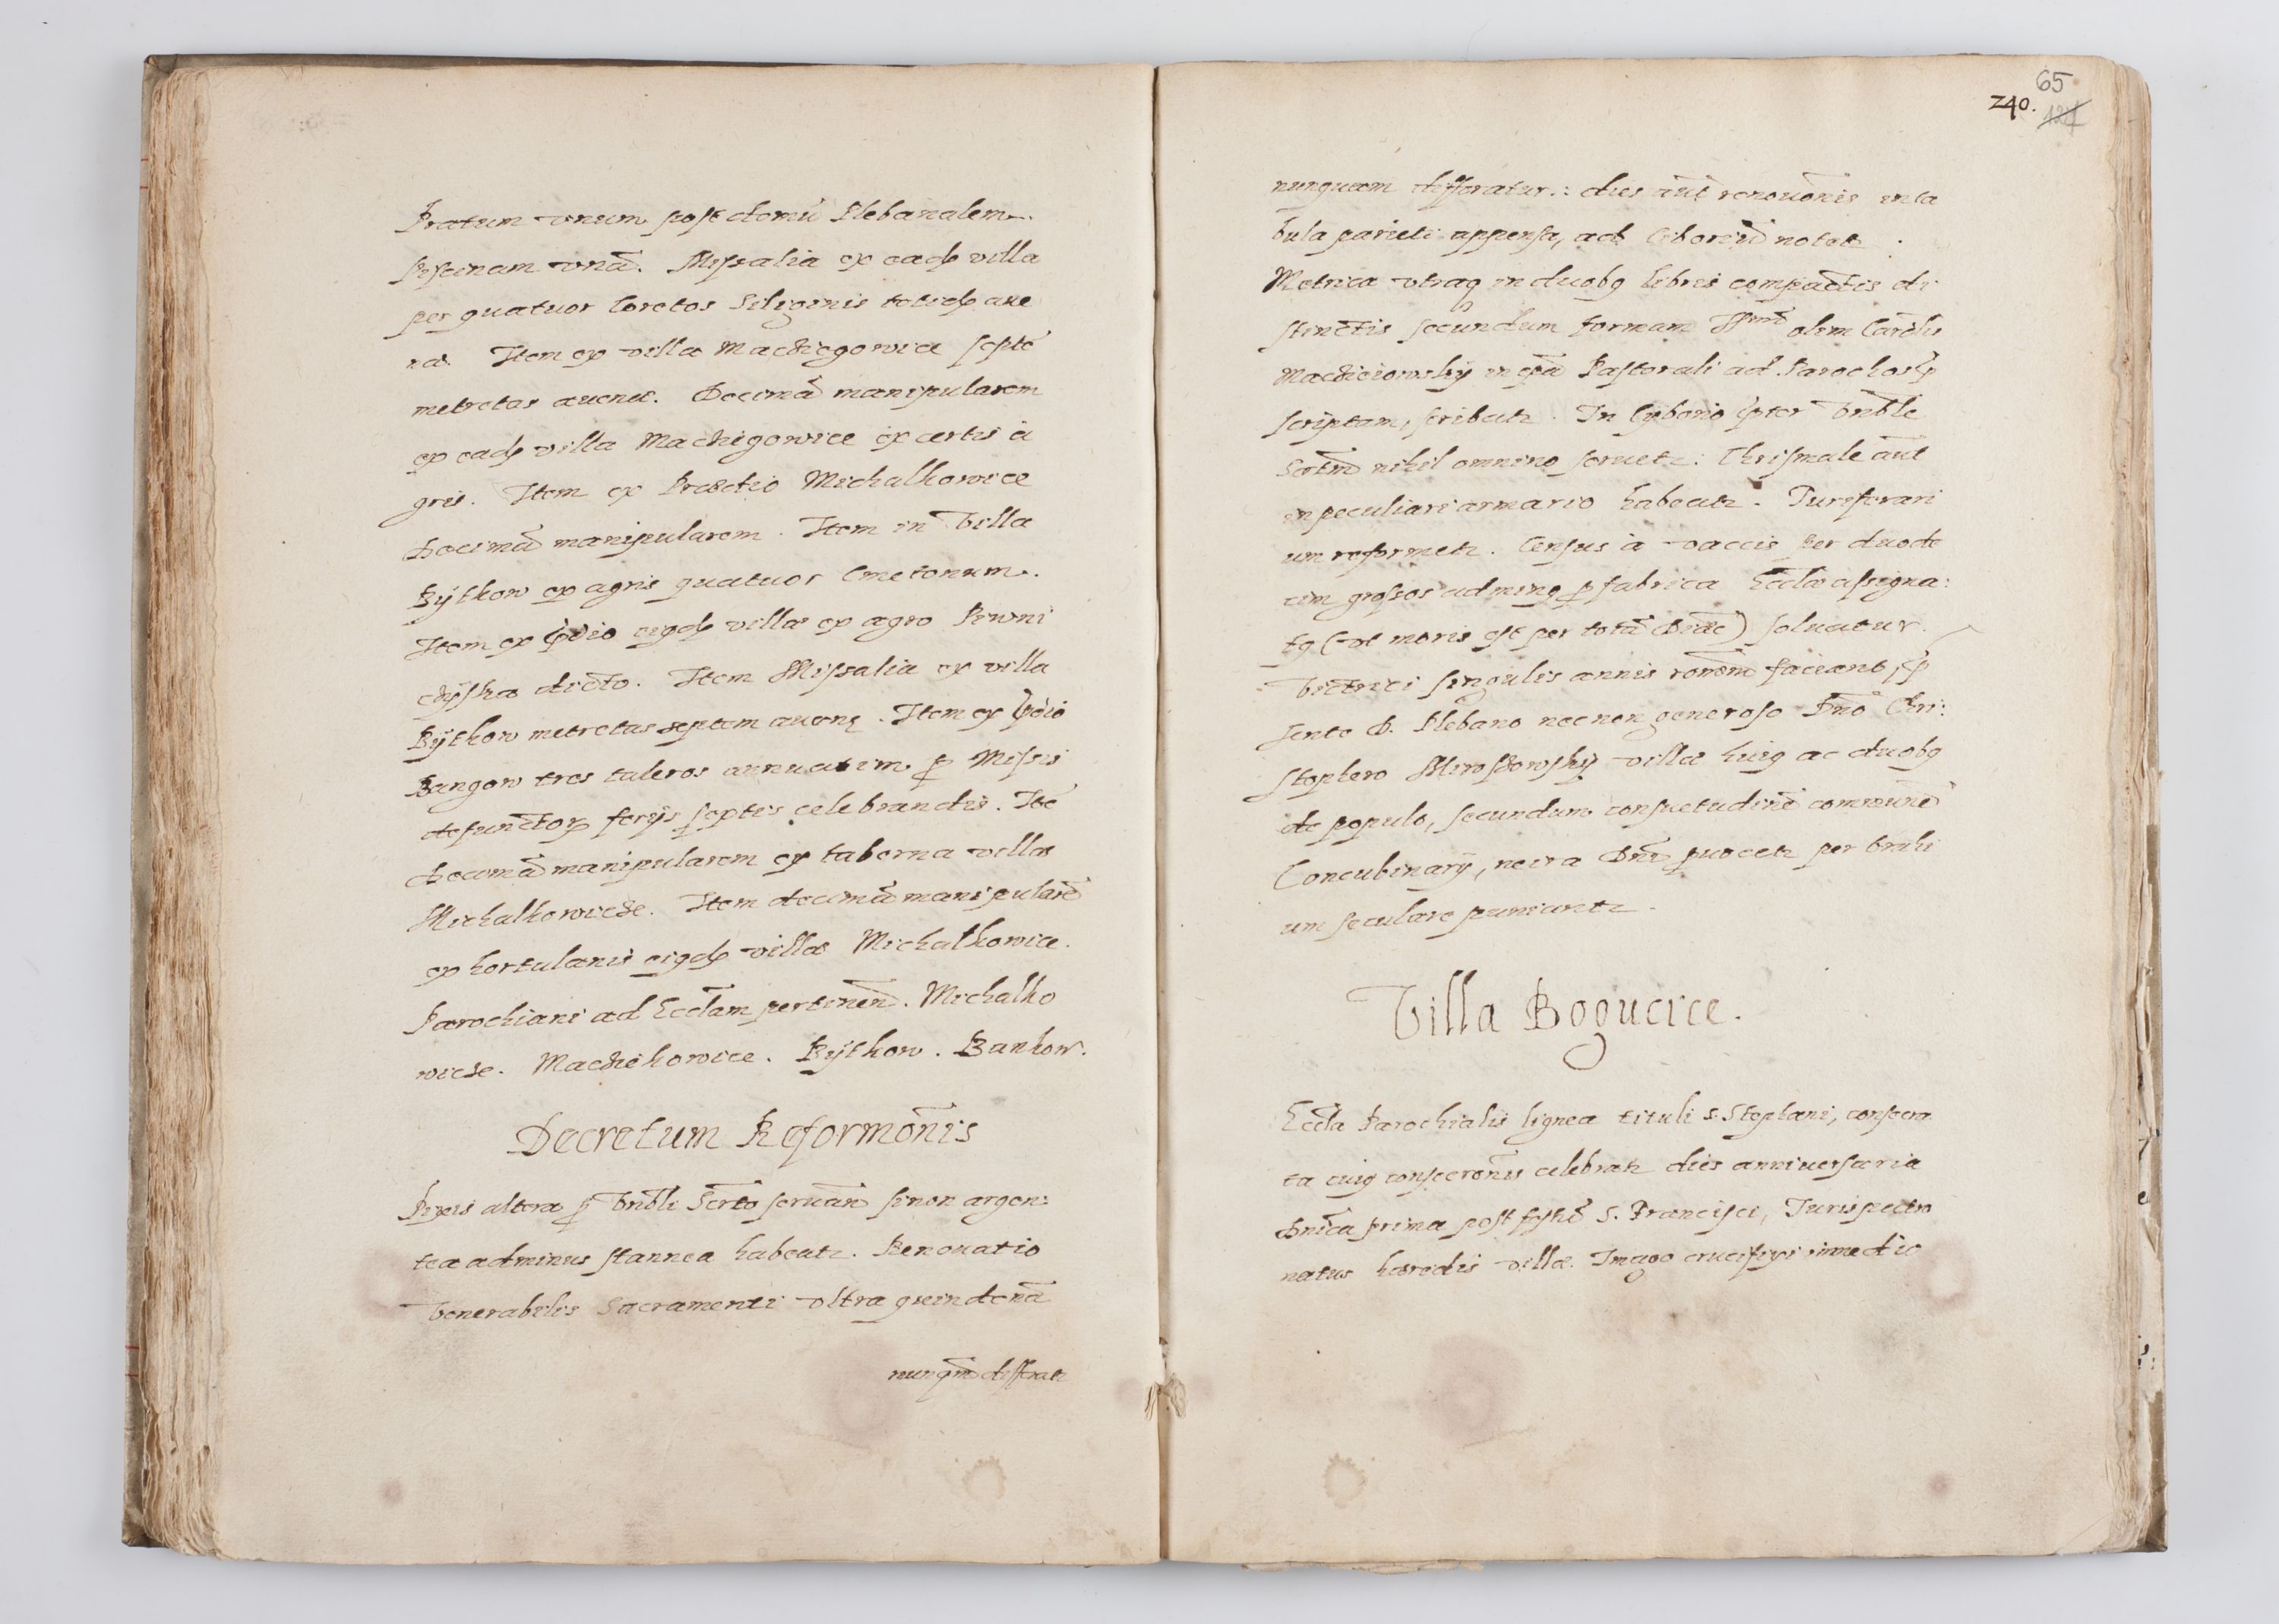 Pratum vnum post domũ Plebanalem.
piscinam vnã. Missalia ex eadẽ villa
per quatuor Coretos Siliginis totidẽ aue
nae. Item ex villa Macziegowice septẽ
metretas auenae. Decimã manipularem
ex eadẽ villa Maczkigowice ex certis a
gris. Item ex Praedio Michalkowice
Decimã manipularem. Item in Villa
Bÿtkow ex agris quatuor Cmetonum.
Item ex p̃dio eiusdẽ villae ex agro
dicto. Item Missalia ex villa
Bÿtkow metretas septem auenę. Item ex p̃dio
Bangow tres taleros annuatim p Missis
defunctor ferijs septis celebrandis. Itẽ
Decimã manipularem ex taberna villae
Michalkowicze. Item decimã manipularẽ
ex hortulanis eiusdẽ villae Michalkowice.
Parochiani ad Eccl̃am pertinen̄. Michalko
wicze. Maczkikowice. Bÿtkow. Bankow.
Decretum Reformõnis
Pixis altera p Vnbl̃i Scr̃to seruan̄ si non argen:
tea adminus stannea habeatr. Renouatio
Venerabilis Sacramenti vltra quindenã
nunqm̃ differatr
65
240.
nunquam differatur: dies aũt renouõnis in ta
bula parieti appensa, ad Ciboriũ notetr.
Metrica vtraq in duobꝯ libris compactis di
stinctis secundum formam Illmi olim Cardlis
Macieiowskÿ in ep̃a Pastorali ad Parochos
scriptam, scribatr. In Cyborio p̃ter Vnbl̃e
Scr̃tm nihil omnino seruetr: Chrismale aũt
in peculiari armario habeatr. Turiferari
um reformetr. Census a vaccis per duode
cim grossos adminꝯ p fabrica Eccl̃ae assigna:
tꝯ (vt moris est per totã Dioec̃) soluatur.
Vitrici singulis annis rõnem faciant, p̃
sente D. Plebano necnon generoso Dño Chri:
stophero Mieroszowskÿ villae huiꝯ ac duobꝯ
de populo, secundum consuetudinẽ communẽ
Concubinarÿ, ne ira Dñi puocetr per brãhi
um seculare puniantr.
Villa Bogucice.
Eccl̃a Parochialis lignea tituli S. Stephani, consecra
ta cuiꝯ consecrõnis celebratr dies anniuersaria
Dñica prima post festũ S. Francisci, Iurispatro
natus haeredis villae. Imago crucifixi in medio